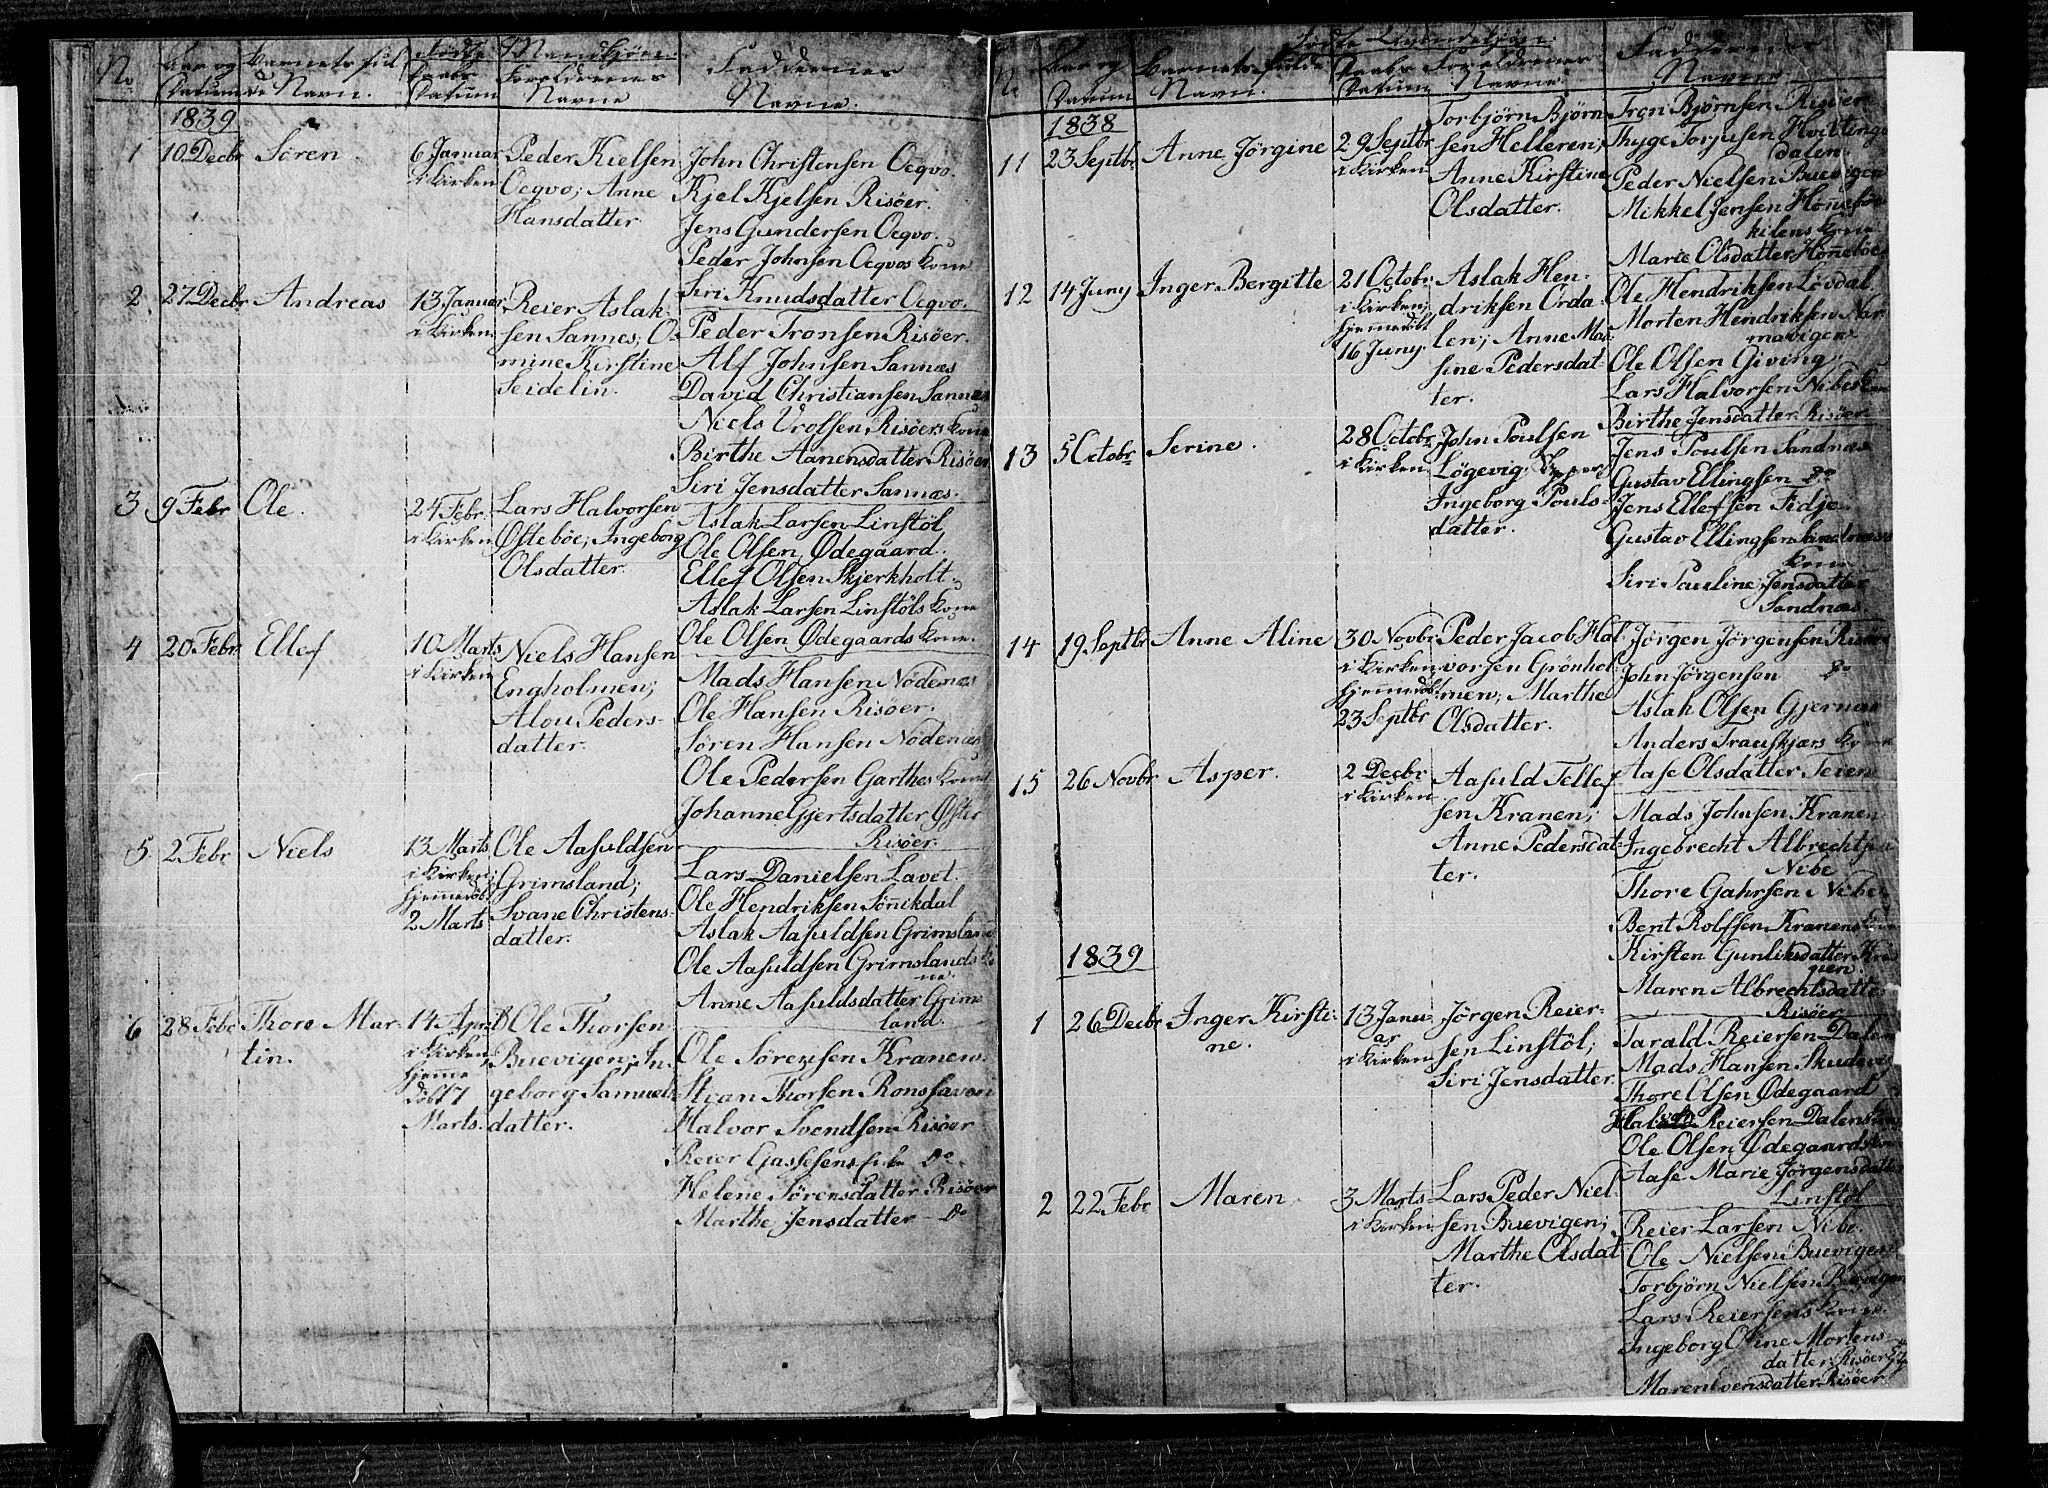 Fødte Mandkjön.
No
Aar og Datum
Barnets fulde Navn.
Daabs Datum
Foreldrenes Navne
Faddernes Navne.
1839
1
10 Decbr
Sören.
6 Januar
i Kirken
Peder Kielsen
Ocqvo; Anne
Hansdatter
John Christensen Ocqvo.
Kjel Kjelsen Risöer.
Jens Gundersen Ocqvo.
Peder Johnsen Ocqvos Kone
Siri Knudsdatter Ocqvo.
2
27 Decbr
Andreas
13 Januar
i Kirken
Reier Aslak-
sen Sannes; O-
mine Kirstine
Seidelin.
Peder Tronsen Risöer.
Alf Johnsen Sannæs
David Christiansen Sannæs
Niels Vrolsen Risöers Kone
Birthe Aanensdatter Risöer
Siri Jensdatter Sannæs.
3
9 Febr
Ole.
24 Febr.
i Kirken
Lars Halvorsen
Østeböe; Ingeborg
Olsdatter.
Aslak Larsen Linstöl
Ole Olsen Ødegaard.
Ellef Olsen Skjerkholt
Aslak Larsen Linstöls Kone
Ole Olsen Ødegaards Kone.
4
20 Febr.
Ellef
10 Marts
i Kirken
Niels Hansen
Engholmen;
Alou Peders-
datter.
Mads Hansen Nödenæs
Ole Hansen Risöer.
Sören Hansen Nödenæs
Ole Pedersen Garthes Kone
Johanne Gjertsdatter Øster
Risöer.
5
2 Febr
Niels
13 Marts
i Kirken;
hjemmedöbt
2 Marts
Ole Aasuldsen
Grimsland;
Svane Christens-
datter.
Lars Danielsen Lavet.
Ole Hendriksen Sönnikdal
Aslak Aasuldsen Grimsland
Ole Aasuldsen Grimslands Ko
ne.
Anne Aasuldsdatter Grims
land.
6
28 Febr
Thore Mar-
tin.
14 April
i Kirken,
hjemme
döbt 7
Marts.
Ole Thorsen
Buevigen; In-
geborg Samuels
datter.
Ole Sörensen Kranen.
Stian Thorsen Ronshaven
Halvor Svendsen Risöer
Reier Gassesens Enke Do.
Helene Sörensdatter Risöer
Marthe Jensdatter - Do
Fødte Qvindekjön.
Aar og Datum
Barnets fulde Navn.
Daabs Datum
Foreldrenes Navne
Faddernes Navne
1838
11
23 Septbr
Anne Jörgine
29 Septbr
i Kirken
Torbjörn Björn
sen Helleren;
Anne Kirstine
Olsdatter.
Tron Björnsen Risöer
Thyge Torjusen Hvittings
dalen.
Peder Nielsen Buevigen
Mikkel Jensen Hönneböe
kilens Kone
Marie Olsdatter Hönneböe
12
14 Juny
Inger Bergitte
21 Octobr
i Kirken;
hjemmedöbt
16 Juny.
Aslak Hen-
driksen Orda-
len; Anne Mar
sine Pedersdat-
ter.
Ole Hendriksen Lövdal.
Morten Hendriksen Nar
mavigen
Ole Olsen Giving,
Lars Halvorsen Nibes Kone
Birthe Jensdatter Risöer
13
5 Octobr
Serine.
28 Octobr
i Kirken
John Poulsen
Lögevig,
Ingeborg Pouls-
datter.
Jens Poulsen Sandnæs
Gustav Ellingsen Do
Jens Ellefsen Fidje.
Gustav Ellingsen Sandnæss
Kone
Siri Pauline Jensdatter
Sandnæs.
14
19 Septbr
Anne Aline
30 Novbr
i Kirken
hjemmedöbt
23 Septbr
Peder Jacob Hal-
vorsen Grönhol-
men, Marthe
Olsdatter.
Jörgen Jörgensen Risöer
John Jörgensen Do
Aslak Olsen Gjernæs
Anders Trauskjærs Kone
Aase Olsdatter Teien
15
26 Novbr
Asper.
2 Decbr
i Kirken
Aasuld Tellef
sen Kranen;
Anne Pedersdat-
ter.
Mads Johnsen Kranen
Ingebrecht Albrechtsen
Nibe
Thore Gahrsen Nibe
Bent Rolfsen Kranens Kone
Kirsten Gunliksdatter Kra
nen
Maren Albrechtsdatter
Risöer
1839
1
26 Decbr
Inger Kirsti-
ne.
13 Janu
ar
i Kirken
Jörgen Reier-
sen Linstöl;
Siri Jensdatter.
Tarald Reiersen Dalen
Mads Hansen Skudevig
Thore Olsen Ødegaard
Halvor Reiersen Dalens Kone
Ole Olsen Ødegaards Kone
Aase Marie Jörgensdatter
Linstöl
2
22 Febr
Maren
3 Marts
i Kirken
Lars Peder Niel
sen Buevigen;
Marthe Olsdat
ter.
Reier Larsen Nibe.
Ole Nielsen Buevigen
Torbjörn Nielsen Buevigen
Lars Reiersens Kone.
Ingeborg Oline Mortens
datter Risöer
Maren Loensdatter Risöer